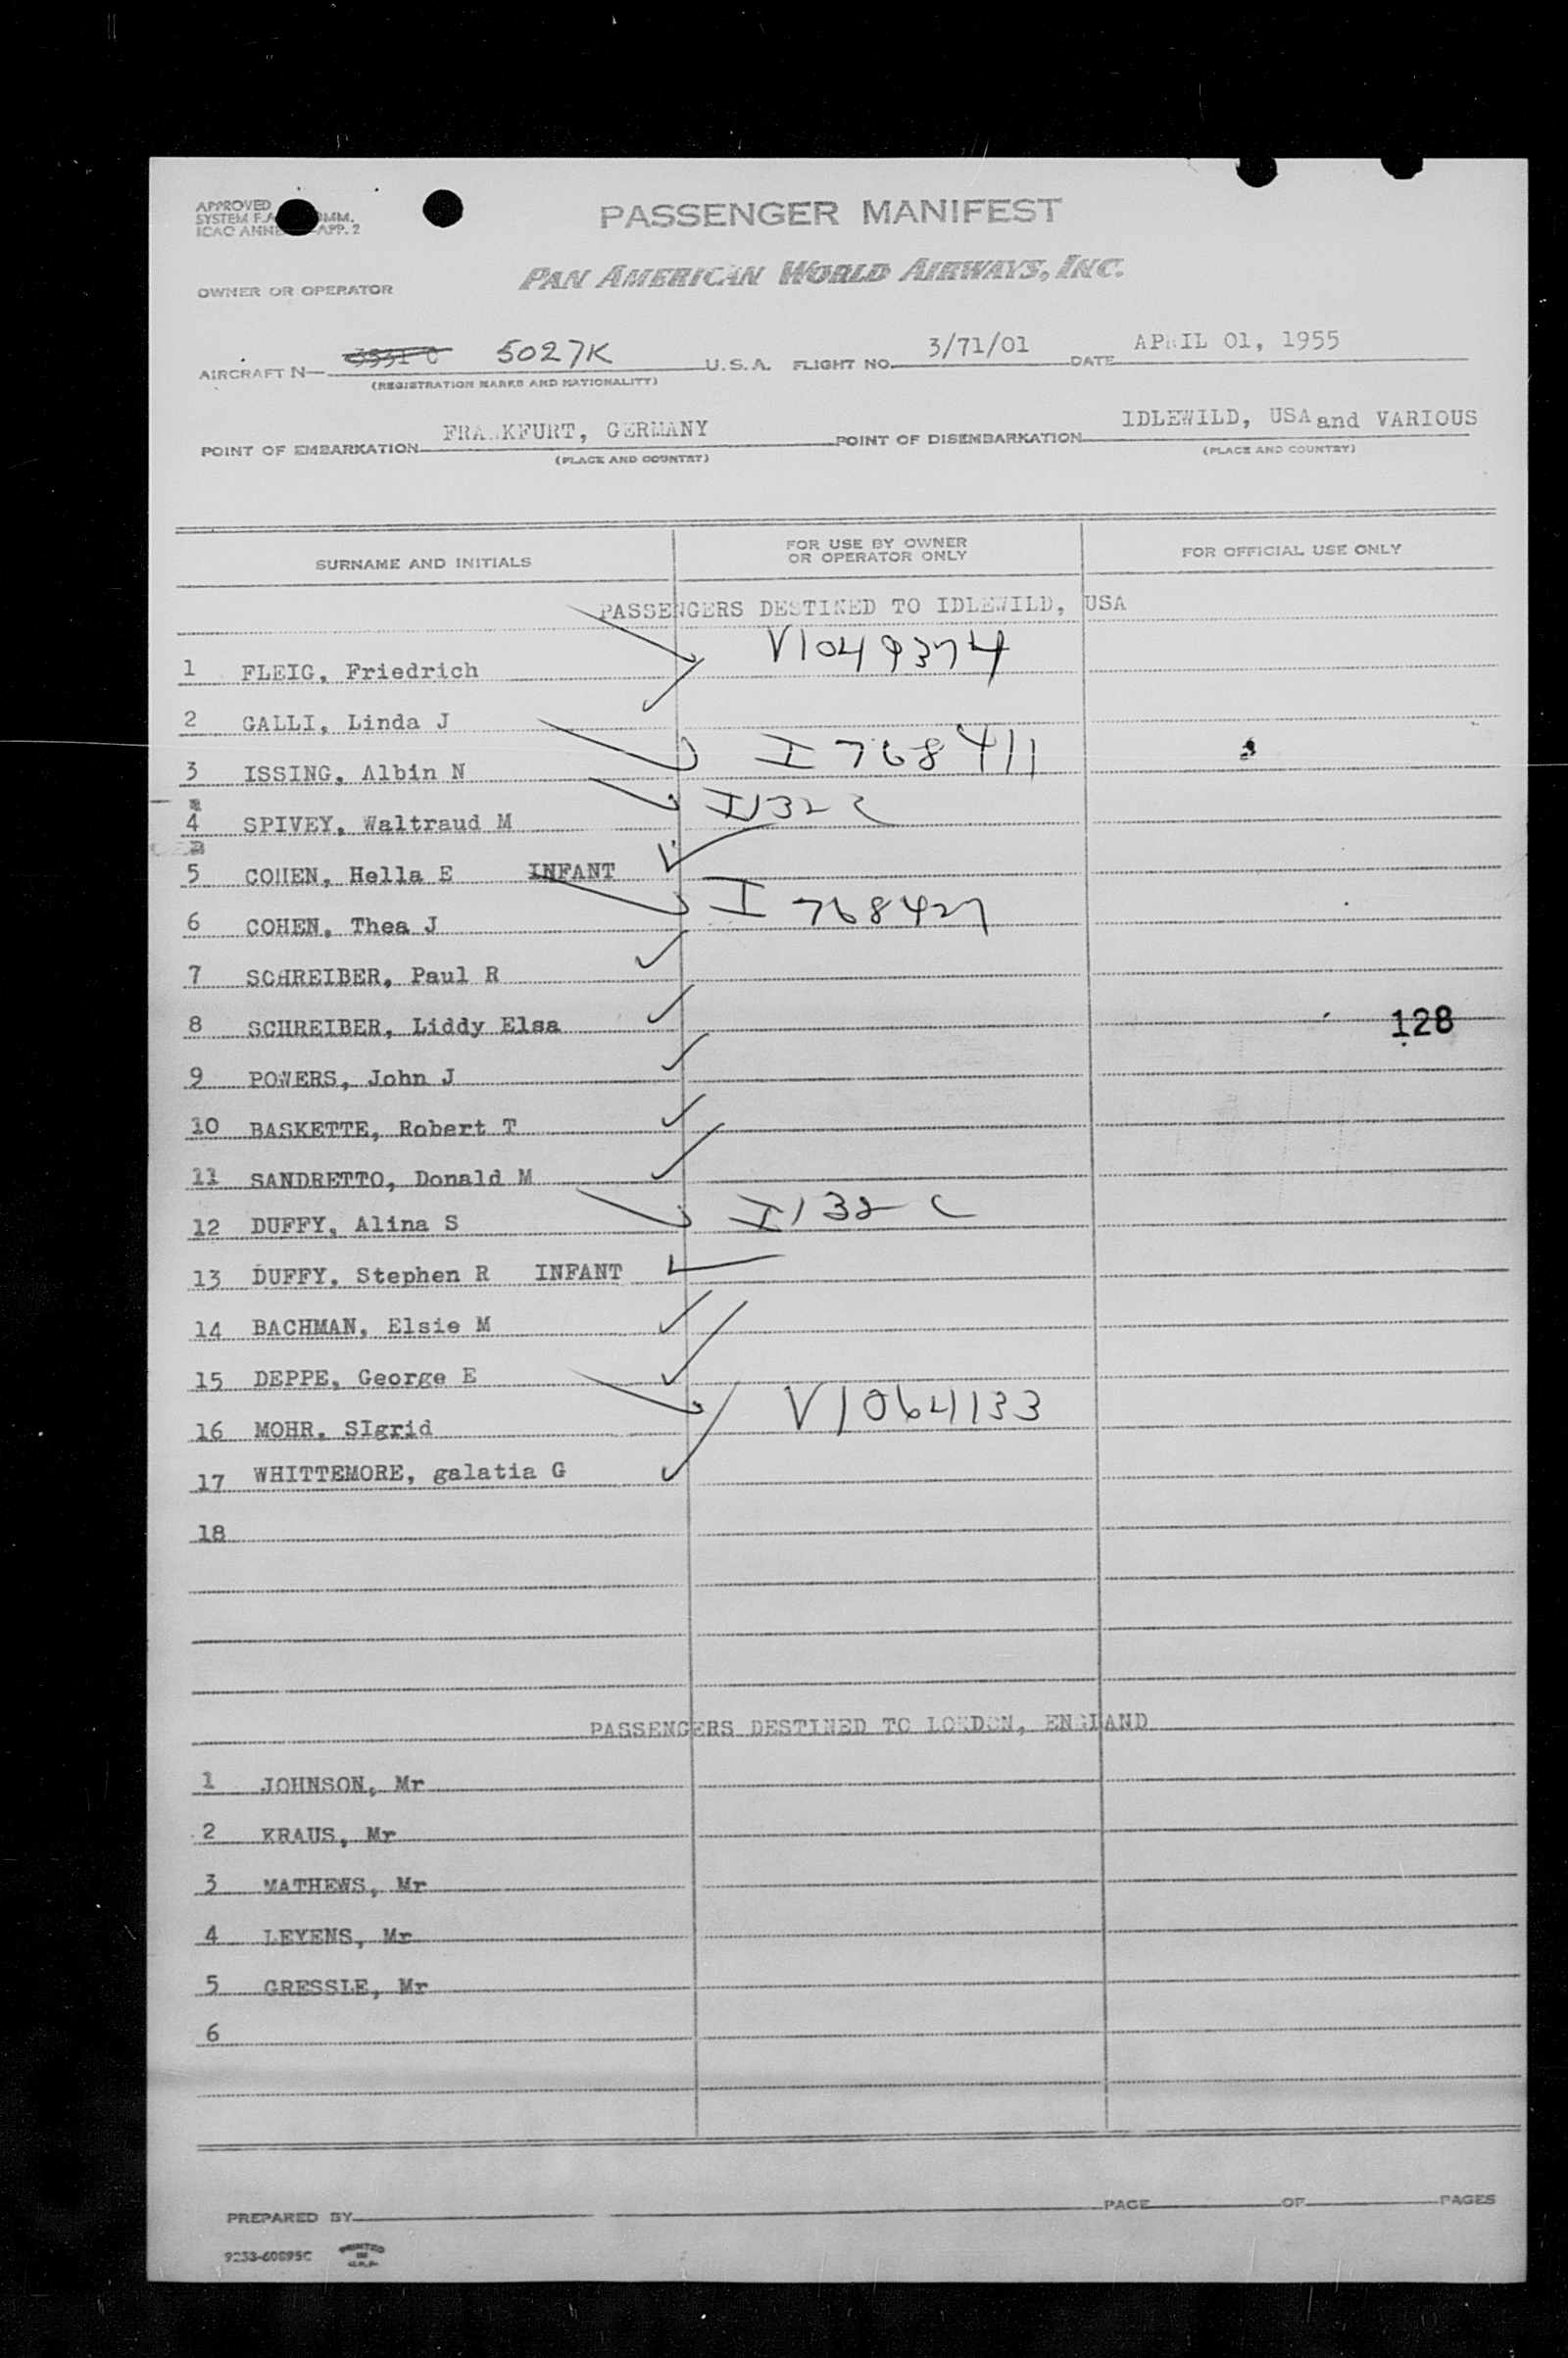 APPROVED
SYSTEM
ICAO APP. 2
PASSENGER MANIFEST
PAN AMERICAN WORLD AIRWAYS, INC.
OWNER OR OPERATOR
AIRCRAFT N— 5027K U.S.A. FLIGHT NO. 3/71/01 DATE APRIL 01, 1955
(REGISTRATION MARKS AND NATIONALITY)
POINT OF EMBARKATION FRANKFURT, GERMANY POINT OF DISEMBARKATION IDLEWILD, USA and VARIOUS
(PLACE AND COUNTRY) (PLACE AND COUNTRY)
SURNAME AND INITIALS FOR USE BY OWNER OR OPERATOR ONLY FOR OFFICIAL USE ONLY
PASSENGERS DESTINED TO IDLEWILD, USA
1 FLEIG, Friedrich V1049374
2 GALLI, Linda J
3 ISSING, Albin N I 768411
4 SPIVEY, Waltraud M I132 C
5 COHEN, Hella E INFANT
6 COHEN, Thea J I 768427
7 SCHREIBER, Paul R
8 SCHREIBER, Liddy Elsa 128
9 POWERS, John J
10 BASKETTE, Robert T
11 SANDRETTO, Donald M
12 DUFFY, Alina S I132 C
13 DUFFY, Stephen R INFANT
14 BACHMAN, Elsie M
15 DEPPE, George E
16 MOHR, SIgrid V1064133
17 WHITTEMORE, galatia G
18
PASSENGERS DESTINED TO LONDON, ENGLAND
1 JOHNSON, Mr
2 KRAUS, Mr
3 MATHEWS, Mr
4 LEYENS, Mr
5 GRESSLE, Mr
6
PREPARED BY PAGE OF PAGES
9233-60895C PRINTED IN U.S.A.